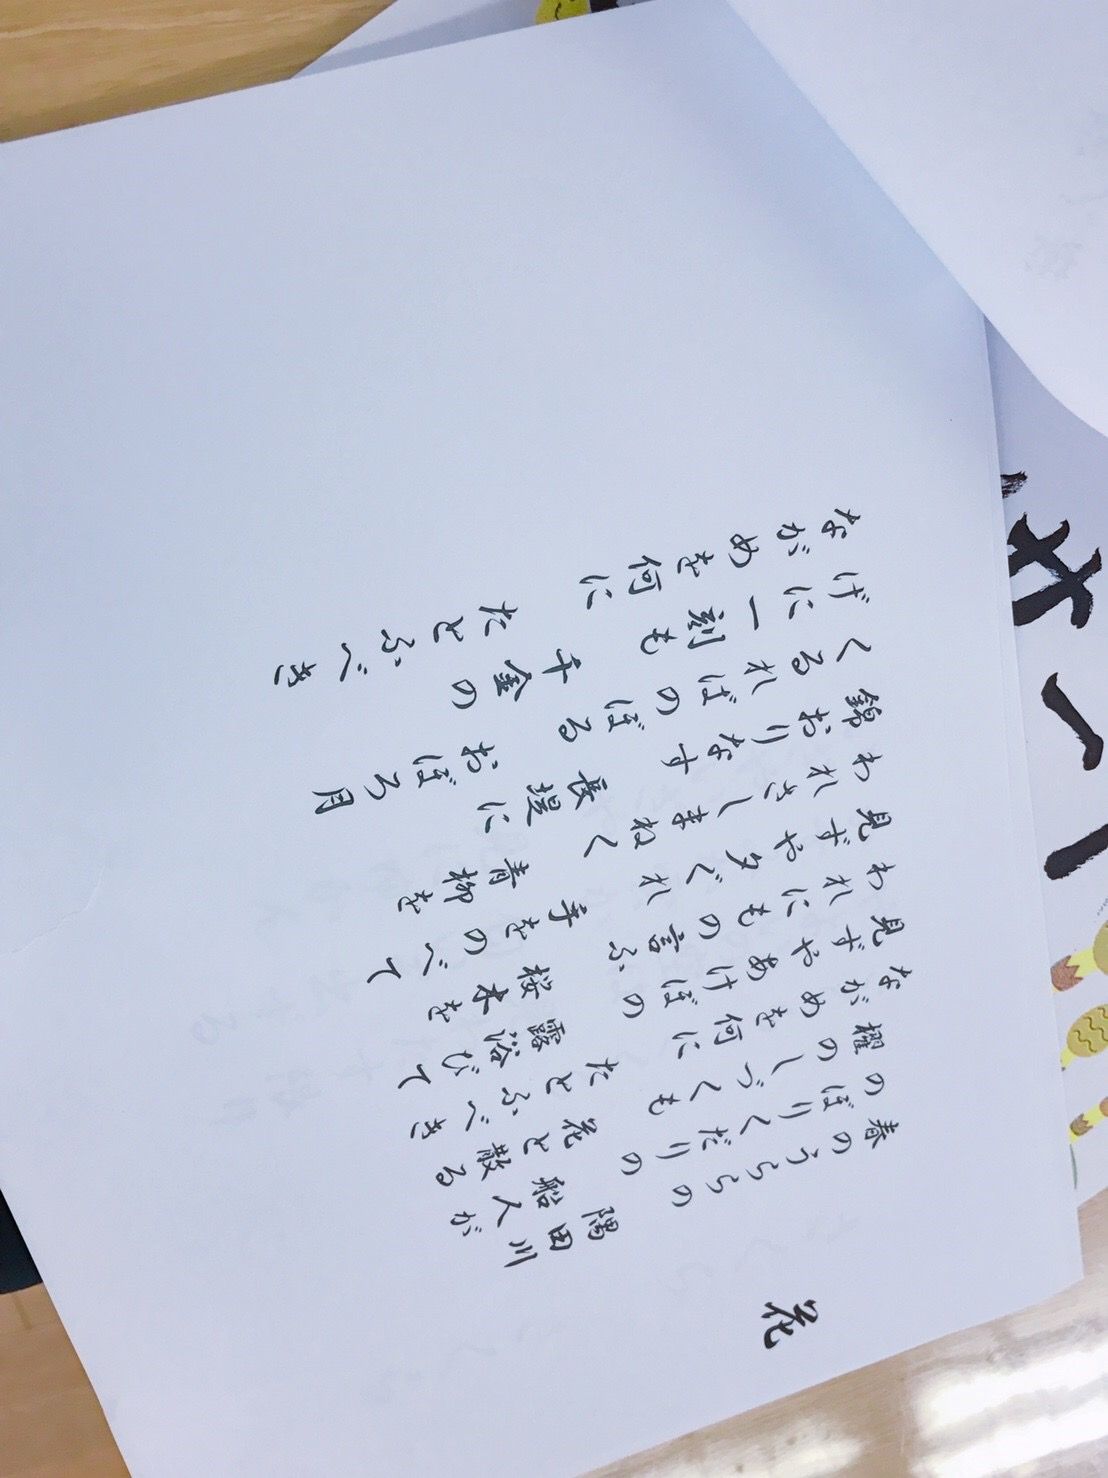 花
春のうららの 隅田川
のぼりくだりの 船人が
櫂のしづくも 花と散る
ながめを何に たとふべき
見ずやあけぼの 露浴びて
われにもの言ふ 桜木を
見ずや夕ぐれ 手をのべて
われさしまねく 青柳を
錦おりなす 長堤に
くるればのぼる おぼろ月
げに一刻も 千金の
ながめを何に たとふべき